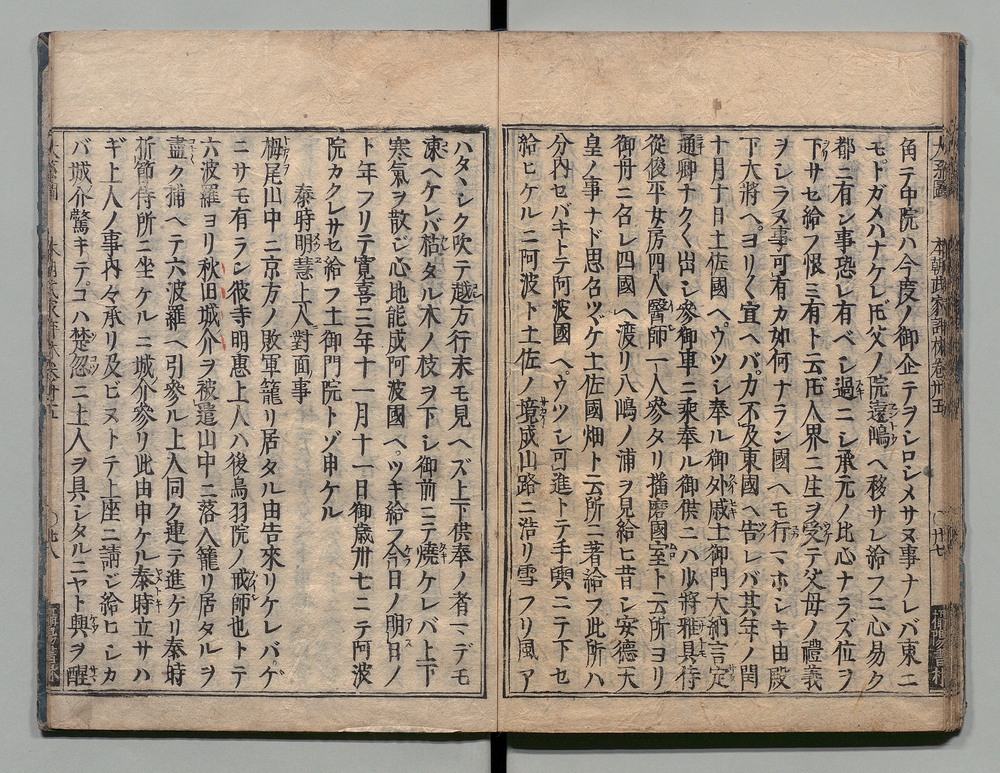 角テ中院ハ今度ノ御企テヲシロシメサヌ事ナレバ東ニ
モトガメハナケレ𪜈父ノ院遠嶋ヘ移サレ給フニ心易ク
都ニ有ン事恐レ有ベシ過ニシ承元ノ比心ナラズ位ヲ
下サセ給フ恨ミ有ト云𪜈人界ニ生ヲ受テ父母ノ禮義
ヲシラヌ事可有カ如何ナラン國ヘモ行マホシキ由殿
下大將ヘヨリ〱宜ヘバ力不及東國ヘ告レバ其年ノ閏
十月十日土佐國ヘウツシ奉ル御外戚土御門大納言定
通卿ナク〱出シ參御車ニ乘奉ル御供ニハ少將雅具侍
從俊平女房四人醫師一人參タリ播磨國室ト云所ヨリ
御舟ニ召レ四國ヘ渡リ八嶋ノ浦ヲ見給ヒ昔シ安德天
皇ノ事ナド思召ツヾケ土佐國畑ト云所ニ著給フ此所ハ
分内セバキトテ阿波國ヘウツシ可進トテ手輿ニテ下セ
給ヒケルニ阿波ト土佐ノ境成山路ニ浩リ雪フリ風ア
本朝武家評林卷卅五
卅七
ハタヽシク吹テ越方行末モ見ヘズ上下供奉ノ者マデモ
凍ヘケレバ枯タル木ノ枝ヲ下シ御前ニテ燒ケレバ上下
寒氣ヲ散ジ心地能成阿波國ヘツキ給フ今日ノ明日ノ
ト年フリテ寛喜三年十一月十一日御歳卅七ニテ阿波
院カクレサセ給フ土御門院トゾ申ケル
泰時明慧上人對面事
栂尾山中ニ京方ノ敗軍籠リ居タル由告來リケレバゲ
ニサモ有ラン彼寺明惠上人ハ後鳥羽院ノ戒師也トテ
六波羅ヨリ秋田城介ヲ被遣山中ニ落入籠リ居タルヲ
盡ク捕ヘテ六波羅ヘ引參ル上人同ク連テ進ケリ泰時
折節侍所ニ坐ケルニ城介參リ此由申ケル泰時立サハ
ギ上人ノ事内々承リ及ビヌトテ上座ニ請ジ給ヒシカ
バ城介驚キテコハ楚忽ニ上人ヲ具シタルニヤト興ヲ醒